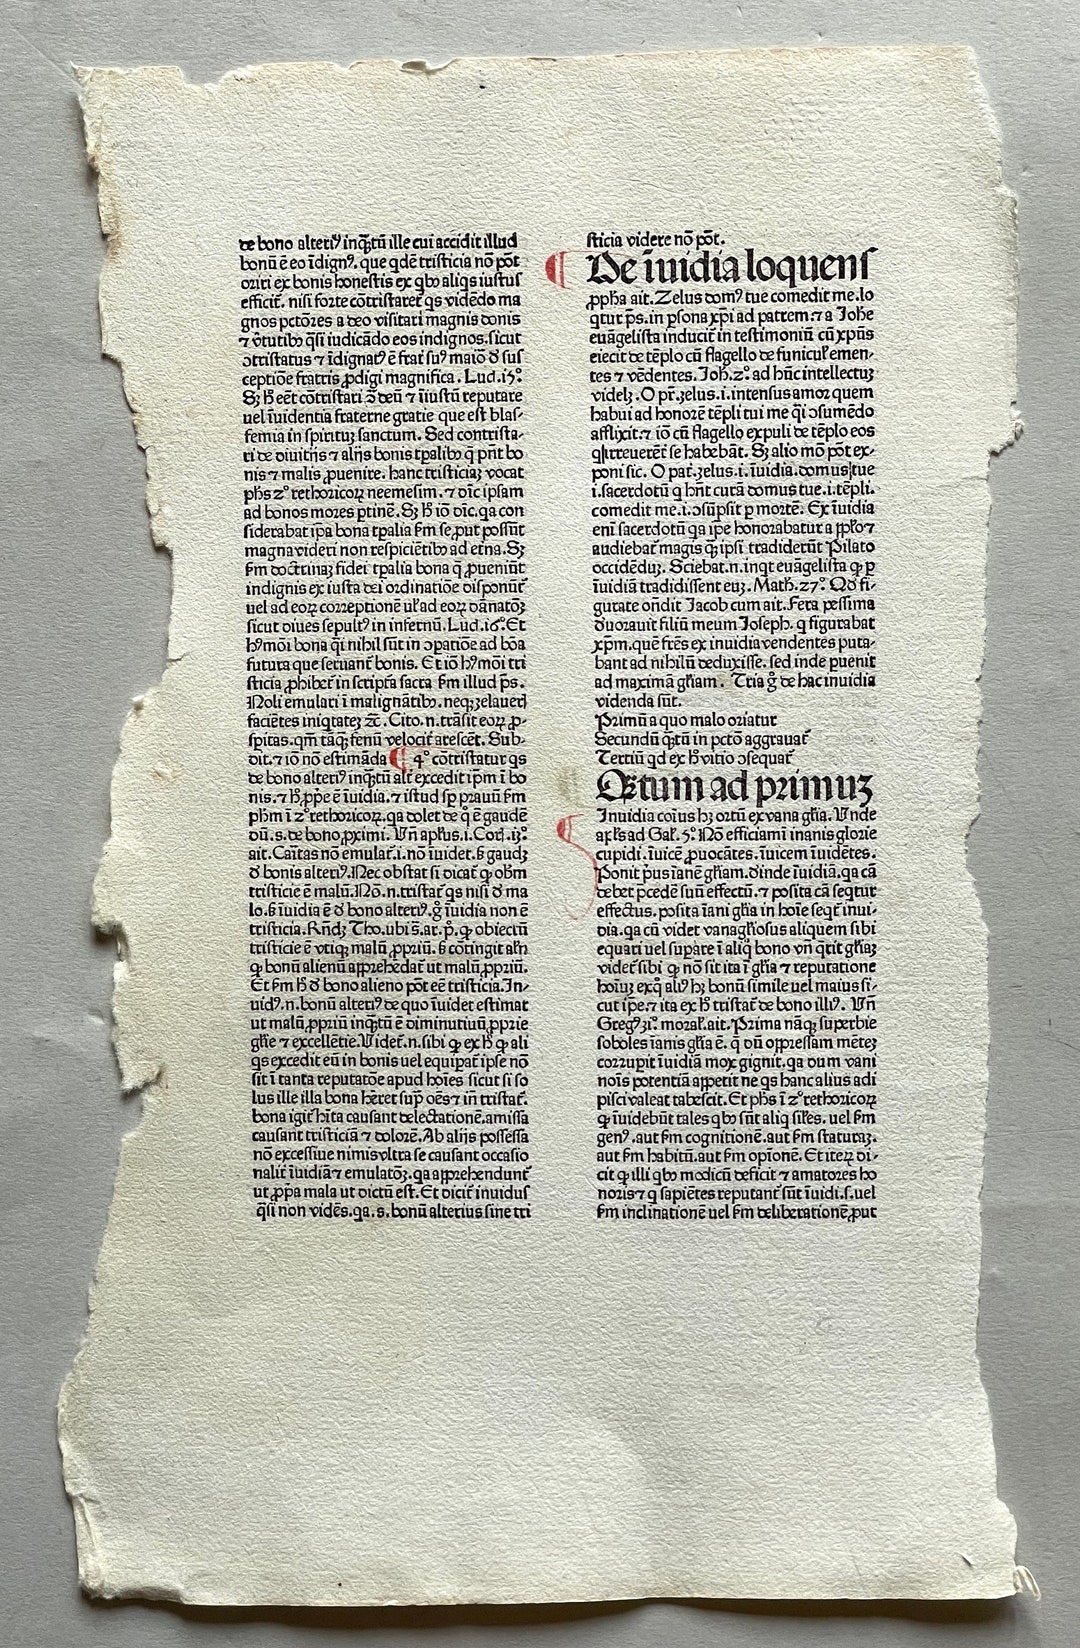 de bono alteriꝰ inqͣtū ille cui accidit illud
bonū ē eo īdignꝰ. que qdē tristicia nō pōt
oriri ex bonis honestis ex qbꝰ aliqs iustus
efficit̄. nisi forte cōtristaret̄ qs vidēdo ma
gnos pctōres a deo visitari magnis donis
⁊ v̄tutibꝰ q̄si iudicādo eos indignos. sicut
ↄtristatus ⁊ īdignatꝰ ē frat̄ suꝰ maiō d̄ sus
ceptiōe fratris ꝓdigi magnifica. Luc̄. i5°.
Sꝫ h̄ eēt cōtristari ↄ̄ deū ⁊ īiustū reputare
uel īuidentia fraterne gratie que est blas⸗
femia in spirituꝫ sanctum. Sed contrista⸗
ri de diuitijs ⁊ alijs bonis tꝑalibꝰ q̄ pn̄t bo
nis ⁊ malis ꝓuenire. hanc tristiciaꝫ vocat
ph̄s 2° rethoricoꝝ neemesim. ⁊ dic̄ ipsam
ad bonos mores ꝑtinē. Sꝫ h̄ iō dic̄. qa con
siderabat ip̄a bona tꝑalia ẜm se, put possūt
magna videri non respiciētibꝰ ad et̄na. Sꝫ
ẜm doctrinaꝫ fidei tꝑalia bona q̄ ꝓueniūt
indignis ex iusta dei ordinatiōe disponūt̄
uel ad eoꝝ correptionē ul̓ ad eoꝝ dānatōꝫ
sicut diues sepultꝰ in infernū. Luc̄. i6°. Et
hꝰmōi bona q̄i nihil sūt in ↄꝑatiōe ad bōa
futura que seruant̄ bonis. Et iō hꝰmōi tri
sticia ꝓhibet̄ in scriptͣa sacra ẜm illud p̄s.
Noli emulari ī malignātibꝰ. neqꝫ zelaueris
faciētes iniqtateꝫ ⁊c̄. Cito. n. trāsit eoꝝ ꝓ⸗
spitas. qm̄ tāqͣꝫ fenū velocit̄ arescēt. Sub⸗
dit. ⁊ iō nō estimāda ¶ 4° cōtristatur qs
de bono alteriꝰ inqͣtū alt̄ excedit ip̄m ī bo
nis. ⁊ h̄ ꝓp̄e ē īuidia. ⁊ istud sꝑ prauū ẜm
ph̄m ī 2° rethoricoꝝ. qa dolet de qͦ ē gaudē
dū. s. de bono ꝓximi. Vn̄ apl̓us. i. Cor̄. i3°.
ait. Caritas nō emulat̄. i. nō īuidet. ẜ gaudꝫ
d̄ bonis alteriꝰ. Nec obstat si dicat̄ ꝙ ob̄m
tristicie ē malū. Nō. n. tristat̄ qs nisi d̄ ma
lo. ẜ īuidia ē d̄ bono alteriꝰ. gͦ īuidia non ē
tristicia. Rn̄dꝫ Tho. ubi s̄. ar. p̄. ꝙ obiectū
tristicie ē vtiqꝫ malū ꝓpriū. ẜ cōtingit alīn
ꝙ bonū alienū apprehēdat̄ ut malū ꝓpriū.
Et ẜm h̄ d̄ bono alieno pōt eē tristicia. In⸗
uidꝰ. n. bonū alteriꝰ de quo īuidet estimat
ut malū ꝓpriū inqͣtū ē diminutiuū ꝓprie
gl̄ie ⁊ excellētie. Videt̄. n. sibi ꝙ ex h̄ ꝙ ali
qs excedit eū in bonis uel equipat̄ ip̄se nō
sit ī tanta reputatōe apud hoīes sicut si so
lus ille illa bona h̄eret suꝑ oēs ⁊ in tristat̄.
bona igit̄ h̄ita causant delectationē. amissa
causant tristiciā ⁊ dolorē. Ab alijs possessa
nō excessiue nimis vltra se causant occasio
nalit̄ īuidiā ⁊ emulatōꝫ. qa apprehendunt̄
ut ꝓpͥa mala ut dictū est. Et dicit̄ inuidus
q̄si non vidēs. qa. s. bonū alterius sine tri
sticia videre nō pōt.
¶ De īuidia loquens
ꝓph̄a ait. Zelus domꝰ tue comedit me. lo
qtur p̄s. in ꝑsona xp̄i ad patrem. ⁊ a Joh̄e
euāgelista inducit̄ in testimoniū cū xp̄us
eiecit de tēplo cū flagello de funicul̓ emen⸗
tes ⁊ vēdentes. Joh̄. 2° ad hūc intellectuꝫ
videlꝫ. O pr̄. zelus. i. intensus amor quem
habui ad honorē tēpli tui me q̄i ↄsumēdo
afflixit. ⁊ iō cū flagello expuli de tēplo eos
q irreuerēt̄ se habebāt. Sꝫ alio mō pōt ex⸗
poni sic. O pat̄. zelus. i. īuidia. domus tue
i. sacerdotū q hn̄t curā domus tue. i. tēpli.
comedit me. i. ↄsūpsit ꝑ mortē. Ex īuidia
enī sacerdotū qa ip̄e honorabatur a ppl̓o ⁊
audiebat̄ magis qͣꝫ ipsi tradiderūt Pilato
occidēduꝫ. Sciebat. n. inqt euāgelista ꝙ ꝑ
īuidiā tradidissent euꝫ. Math. 27°. Qd̄ fi⸗
gurate on̄dit Jacob cum ait. Fera pessima
deuorauit filiū meum Joseph. q figurabat
xp̄m. quē fr̄es ex inuidia vendentes puta⸗
bant ad nihilū deduxisse. sed inde ꝑuenit
ad maximā gl̄iam. Tria gͦ de hac inuidia
videnda sūt.
Primū a quo malo oriatur
Secundū qͣtū in pctō aggrauat̄
Tertiū qd ex h̄ vitio ↄsequat̄
Qꝫtum ad primuꝫ
Inuidia cōius hꝫ ortū ex vana gl̄ia. Vnde
apl̓s ad Gal̓. 5°. Nō efficiami inanis glorie
cupidi. īuicē ꝓuocātes. īuicem īuidētes.
Ponit p̄us īanē gl̄iam. deinde īuidiā. qa cā
debet p̄cedē suū effectū. ⁊ posita cā seqtur
effectus. posita īani gl̄ia in hoīe seqt̄ inui⸗
dia. qa cū videt vanagl̄iosus aliquem sibi
equari uel suꝑare ī aliqͦ bono vn̄ qͣrit gl̄iaꝫ
videt̄ sibi ꝙ nō sit ita ī gl̄ia ⁊ reputatione
hoīuꝫ ex qͦ aliꝰ hꝫ bonū simile uel maius si⸗
cut ip̄e. ⁊ ita ex h̄ tristat̄ de bono illiꝰ. Vn̄
Gregꝰ 3i°. moral̓. ait. Prima nāqꝫ superbie
soboles īanis gl̄ia ē. q̄ dū oppressam mētēꝫ
corrupit īuidiā mox gignit. qa dum vani
noīs potentiā appetit ne qs hanc alius adi
pisci valeat tabescit. Et ph̄s ī 2° rethoricoꝝ
ꝙ īuidebūt tales qbꝰ sūt aliq sil̓es. uel ẜm
genꝰ. aut ẜm cognitionē. aut ẜm staturaꝫ.
aut ẜm habitū. aut ẜm opīonē. Et iteꝝ di⸗
cit ꝙ illi qbꝰ modicū deficit ⁊ amatores ho
noris ⁊ q sapiētes reputant̄ sūt īuidi. s. uel
ẜm inclinationē uel ẜm deliberationē, put